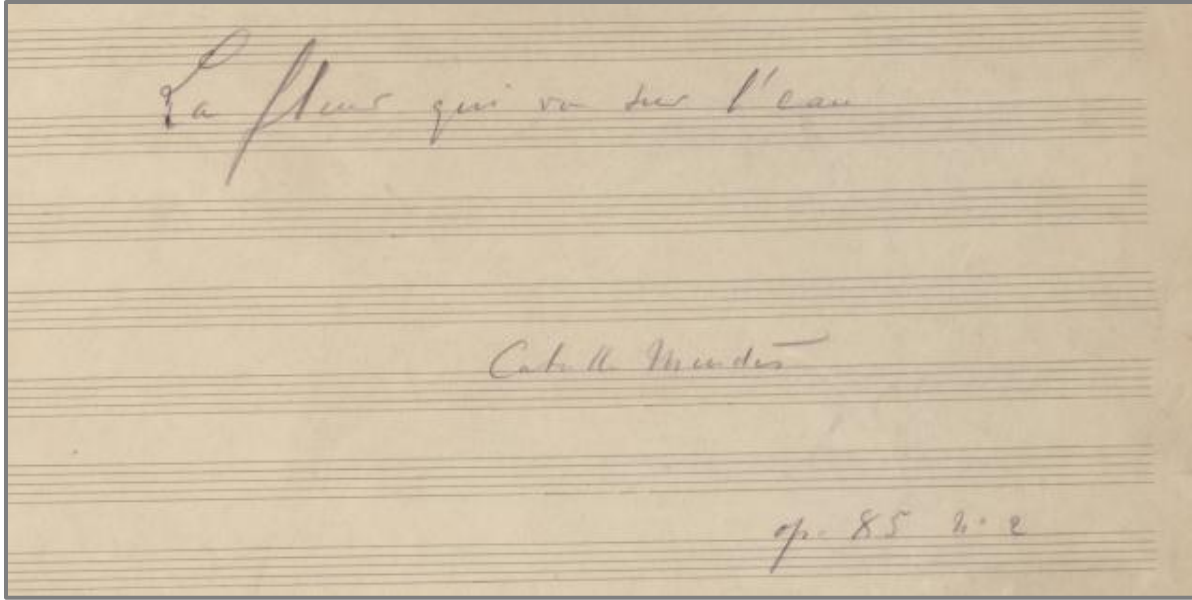 La fleur qui va sur l'eau
Catulle Mendès
op. 85 n° 2